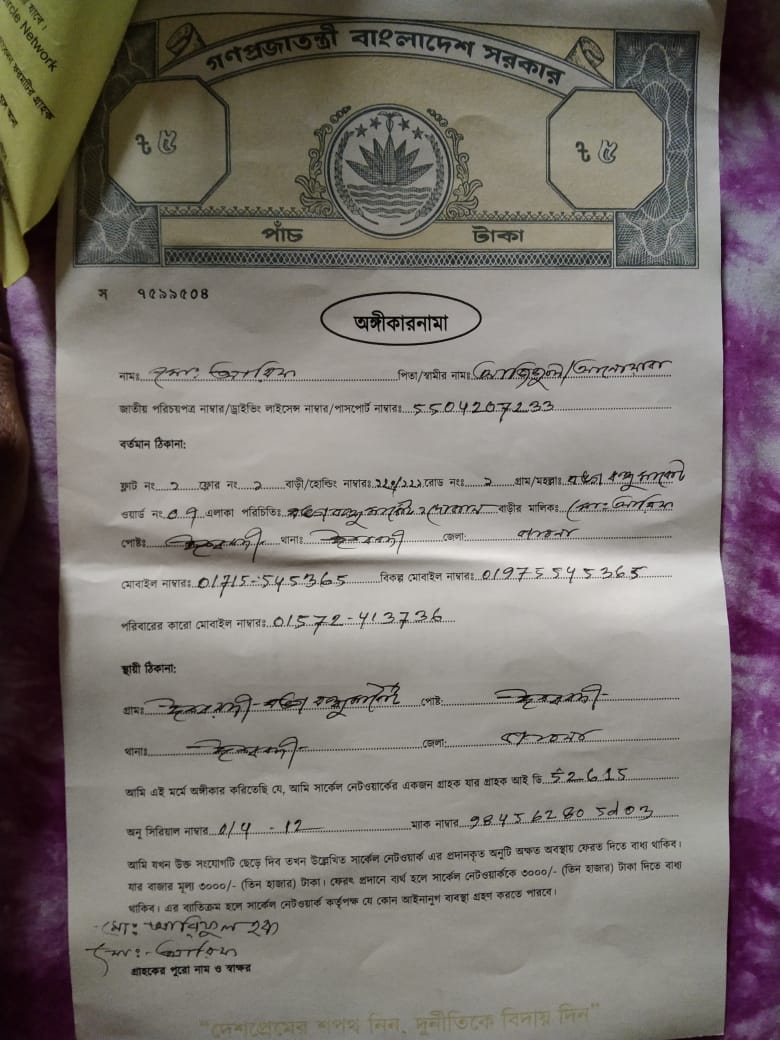 Circle Network
গণপ্রজাতন্ত্রী বাংলাদেশ সরকার
৳ ৫ ৳ ৫
পাঁচ টাকা
স ৭৫৯৯৫০৪
অঙ্গীকারনামা
নামঃ মোঃ আরিফ পিতা/স্বামীর নামঃ /আনোয়ারা
জাতীয় পরিচয়পত্র নাম্বার/ড্রাইভিং লাইসেন্স নাম্বার/পাসপোর্ট নাম্বারঃ 5504207233
বর্তমান ঠিকানা:
ফ্লাট নং ২ ফ্লোর নং ২ বাড়ী/হোল্ডিং নাম্বারঃ রোড নংঃ ২ গ্রাম/মহল্লাঃ
ওয়ার্ড নং 07 এলাকা পরিচিতিঃ বাড়ীর মালিকঃ মোঃ আরিফ
পোষ্টঃ ঈশ্বরদী থানাঃ ঈশ্বরদী জেলা: পাবনা
মোবাইল নাম্বারঃ 01715-545365 বিকল্প মোবাইল নাম্বারঃ 01975545365
পরিবারের কারো মোবাইল নাম্বারঃ 01572-413736
স্থায়ী ঠিকানা:
গ্রামঃ ঈশ্বরদী পোষ্ট: ঈশ্বরদী
থানাঃ ঈশ্বরদী জেলা: পাবনা
আমি এই মর্মে অঙ্গীকার করিতেছি যে, আমি সার্কেল নেটওয়ার্কের একজন গ্রাহক যার গ্রাহক আই ডি 52615
অনু সিরিয়াল নাম্বার 0/4 - 12 ম্যাক নাম্বার 98456280 5d03
আমি যখন উক্ত সংযোগটি ছেড়ে দিব তখন উল্লেখিত সার্কেল নেটওয়ার্ক এর প্রদানকৃত অনুটি অক্ষত অবস্থায় ফেরত দিতে বাধ্য থাকিব।
যার বাজার মূল্য ৩০০০/- (তিন হাজার) টাকা। ফেরৎ প্রদানে ব্যর্থ হলে সার্কেল নেটওয়ার্ককে ৩০০০/- (তিন হাজার) টাকা দিতে বাধ্য
থাকিব। এর ব্যতিক্রম হলে সার্কেল নেটওয়ার্ক কর্তৃপক্ষ যে কোন আইনানুগ ব্যবস্থা গ্রহণ করতে পারবে।
মোঃ আরিফুল হক
মোঃ আরিফ
গ্রাহকের পুরো নাম ও স্বাক্ষর
“দেশপ্রেমের শপথ নিন, দুর্নীতিকে বিদায় দিন”